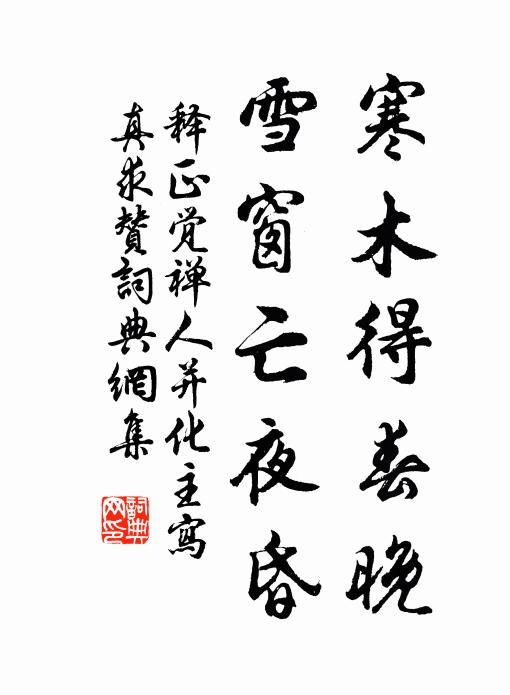 寒木得春晚
雪窗亡夜昏
释正觉禅人并化主寫
真求赞詞典網集
詞典網印